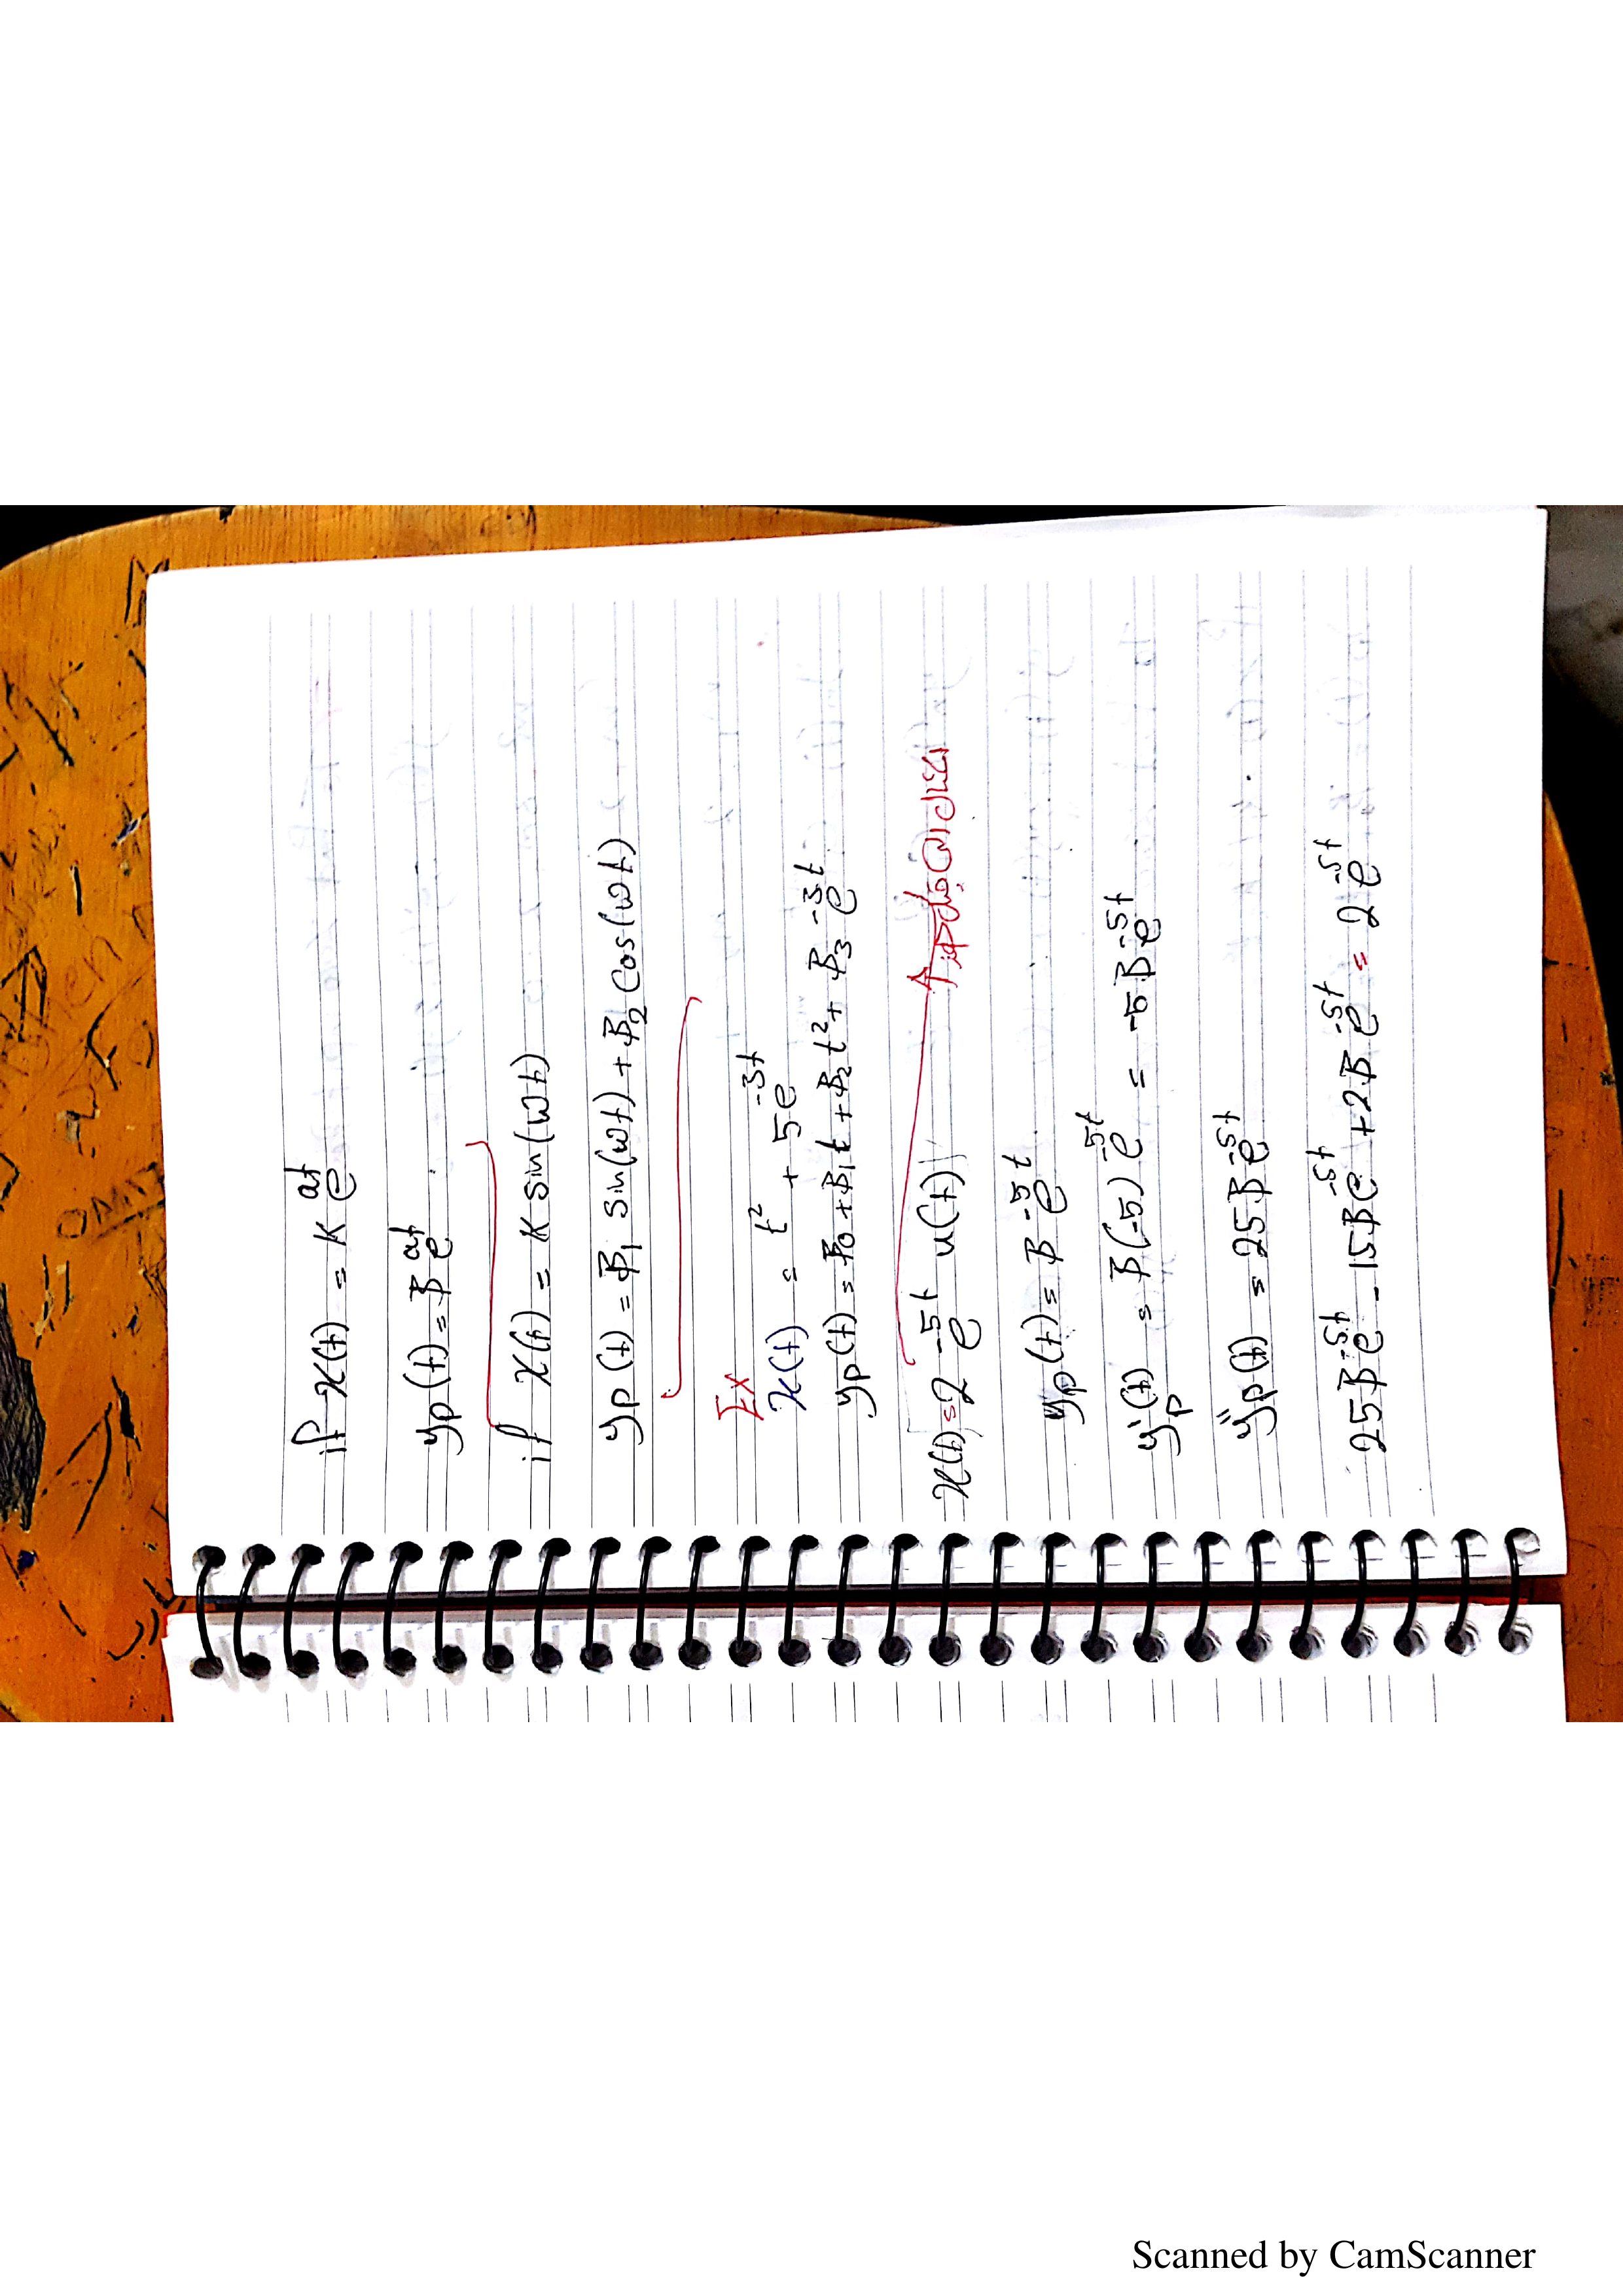 if x(t) = K e^{at}
yp(t) = B e^{at}
if x(t) = K sin(ωt)
yp(t) = B₁ sin(ωt) + B₂ Cos(ωt)
Ex
x(t) = t² + 5e^{-3t}
yp(t) = B₀ + B₁t + B₂t² + B₃e^{-3t}
x(t) = 2 e^{-5t} u(t)
yp(t) = B e^{-5t}
y'p(t) = B(-5) e^{-5t} = -5Be^{-5t}
y''p(t) = 25Be^{-5t}
25Be^{-5t} - 15Be^{-5t} + 2Be^{-5t} = 2e^{-5t}
Scanned by CamScanner